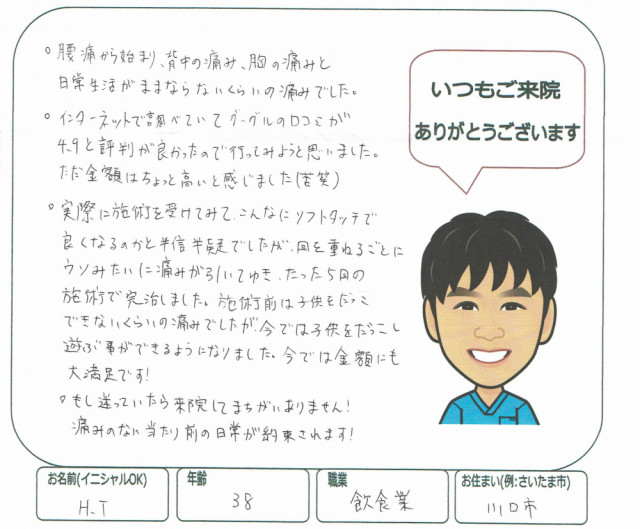 ○腰痛から始まり、背中の痛み、胸の痛みと
日常生活がままならないくらいの痛みでした。
○インターネットで調べていてグーグルの口コミが
4.9と評判が良かったので行ってみようと思いました。
ただ金額はちょっと高いと感じました(苦笑)
○実際に施術を受けてみて、こんなにソフトタッチで
良くなるのかと半信半疑でしたが、回を重ねるごとに
ウソみたいに痛みが引いてゆき、たった5回の
施術で完治しました。施術前は子供をだっこ
できないくらいの痛みでしたが、今では子供をだっこし
遊ぶ事ができるようになりました。今では金額にも
大満足です!
○もし迷っていたら来院してまちがいありません!
痛みのない当たり前の日常が約束されます!
いつもご来院
ありがとうございます
お名前(イニシャルOK)
H.T
年齢
38
職業
飲食業
お住まい(例:さいたま市)
川口市